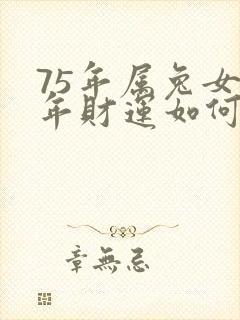 75年属兔女
年财运如何
章無忌